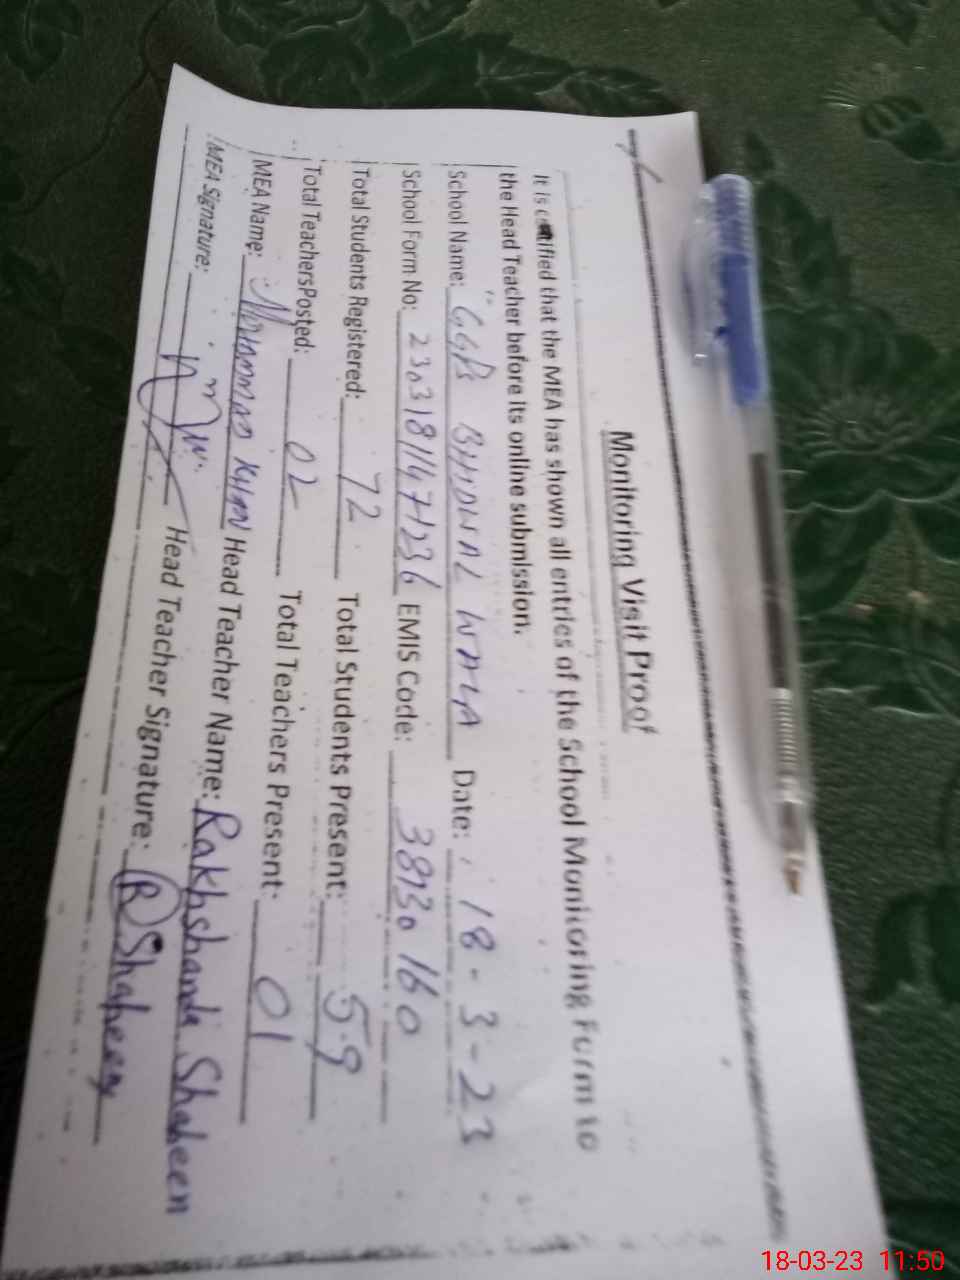 Monitoring Visit Proof
It is certified that the MEA has shown all entries of the School Monitoring Form to
the Head Teacher before its online submission.
School Name: GGPS BHDWAL WALA Date: 18-3-23
School Form No: EMIS Code: 38130160
Total Students Registered: 72 Total Students Present: 59
Total TeachersPosted: 02 Total Teachers Present: 01
MEA Name: Mohammad Khan Head Teacher Name: Rakhshanda Shaheen
MEA Signature: Head Teacher Signature: R Shaheen
18-03-23 11:50